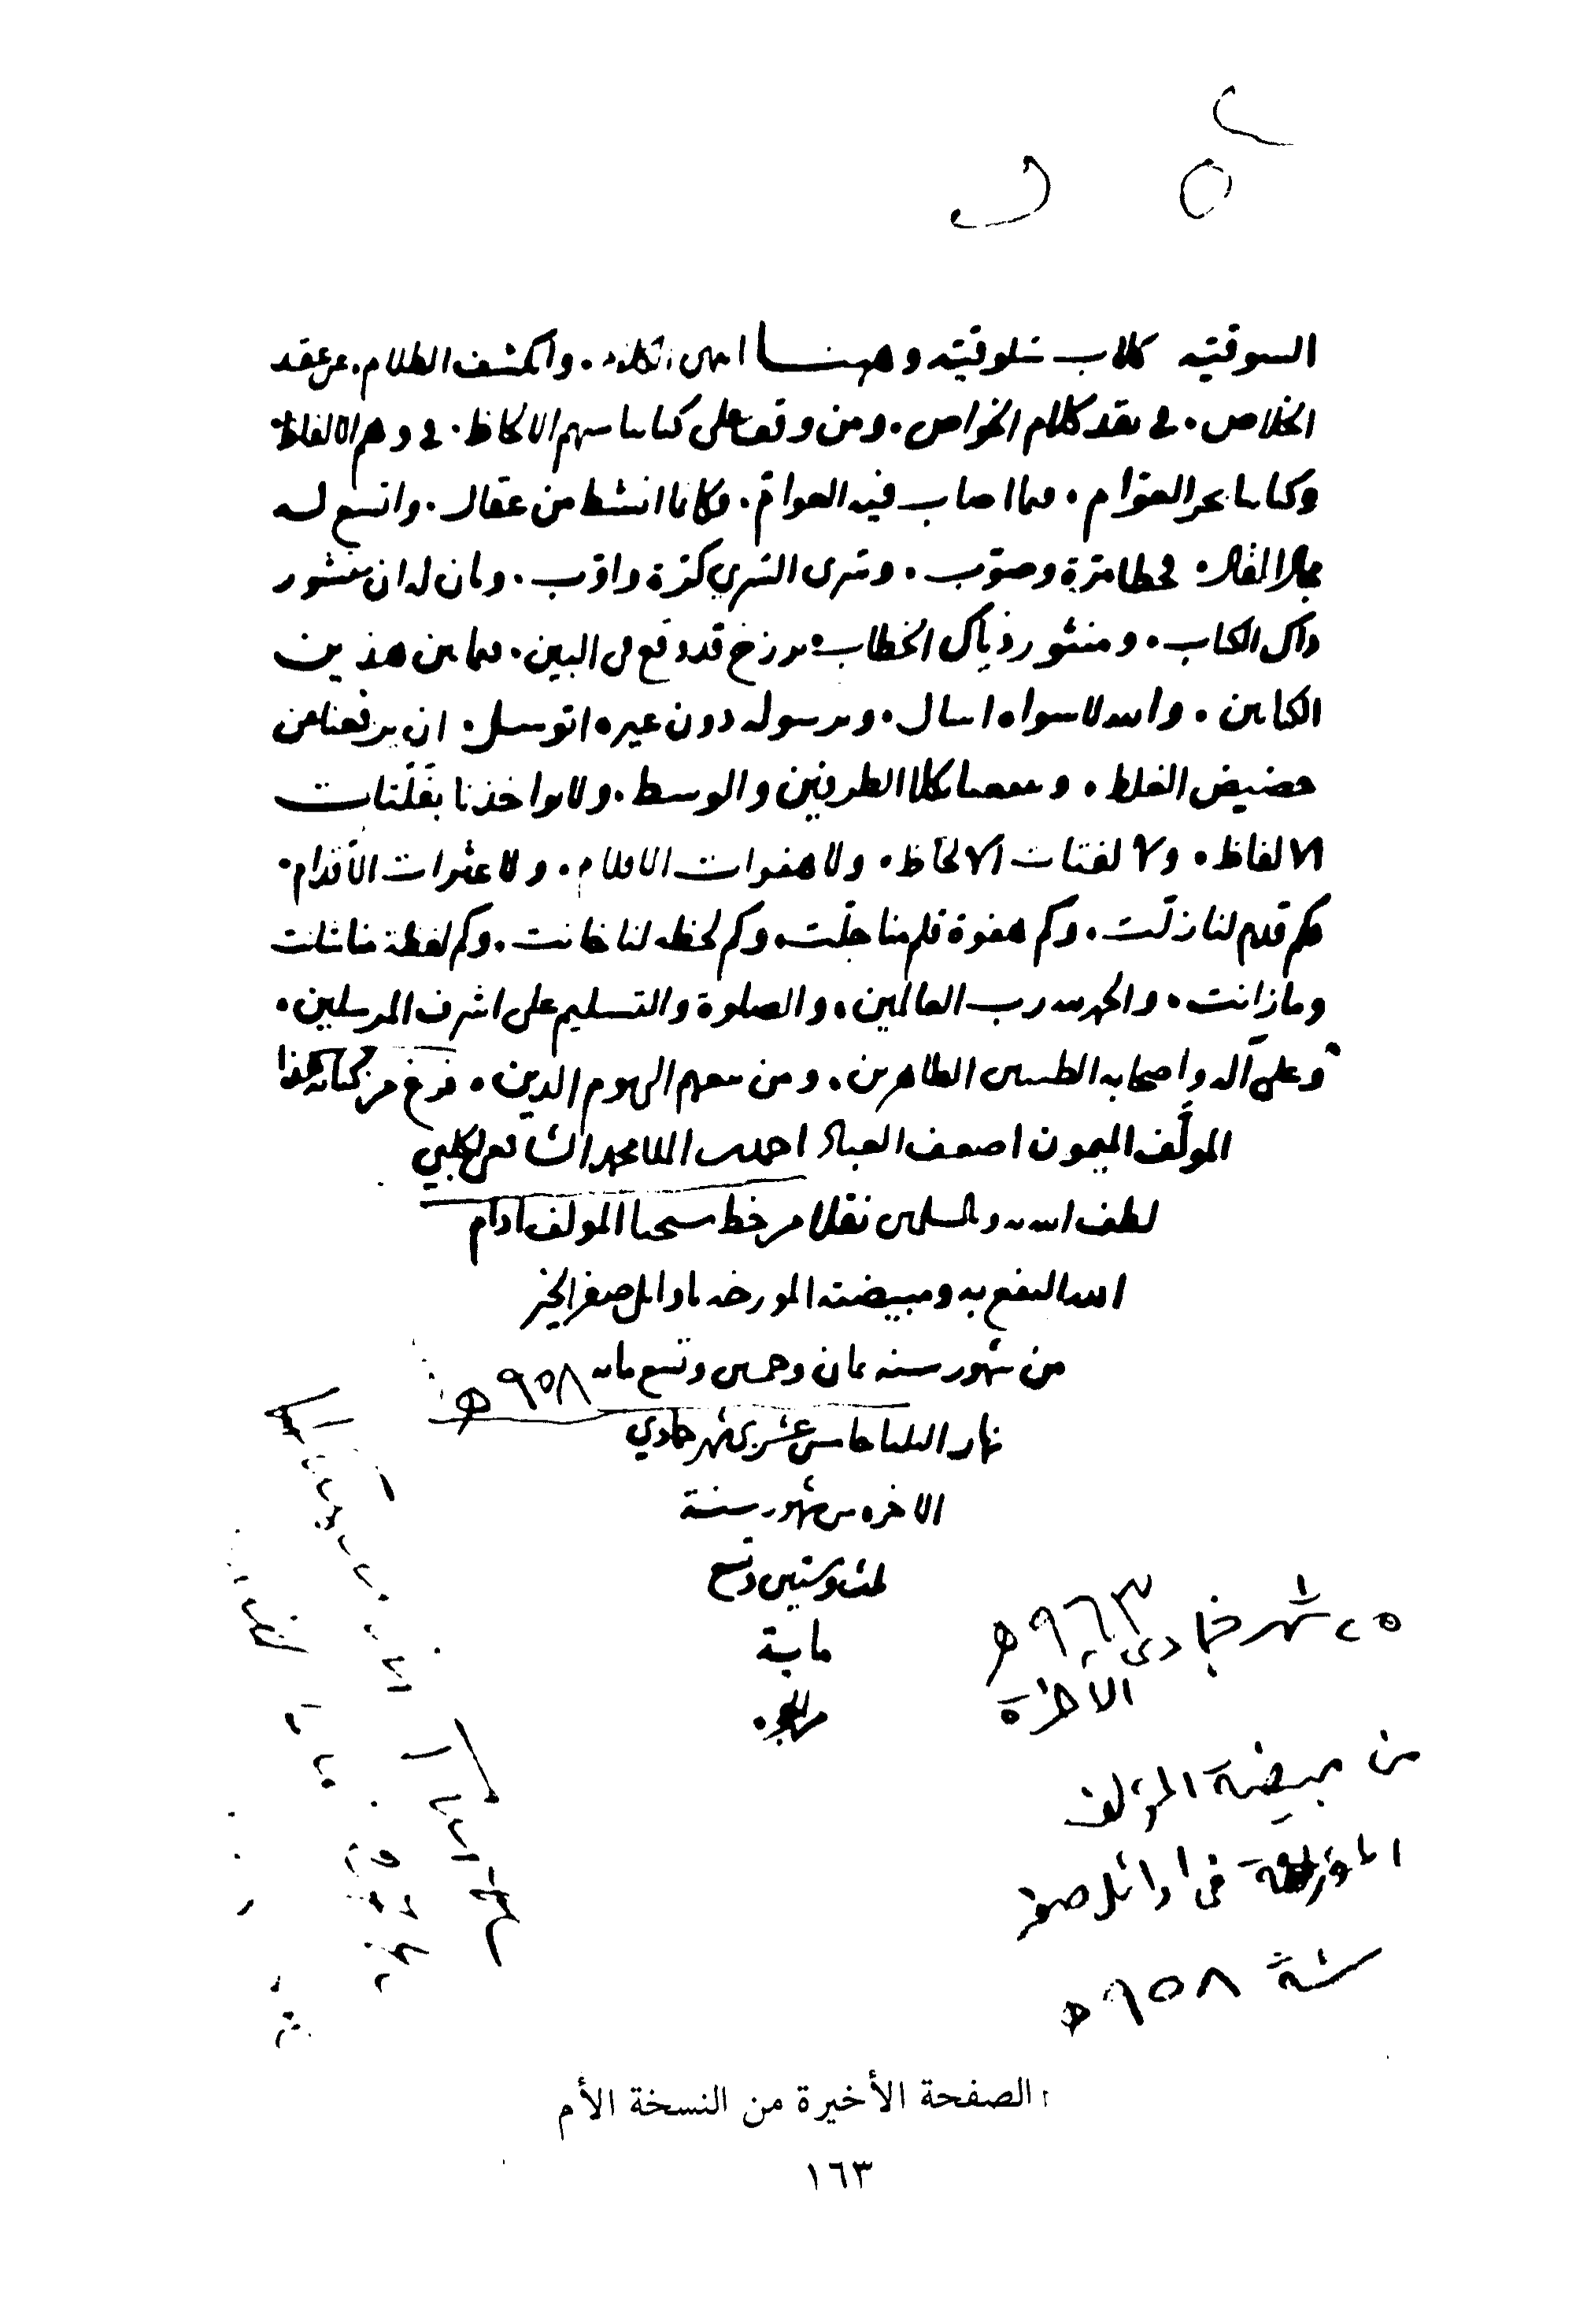 السوقيه كلاب سلوقيه وههنا انتهى الكلام . وانكشف الظلام . عن عقد
الخلاص . في نقد كلام الخواص . ومن وقف على كتابنا سهم الالحاظ . في وهم الالفاظ
وكتابنا بحر العوّام . فيما اصاب فيه العوام . فكانما انشط من عقال . واتسع له
مجال المقال . فخطا مرة وصوّب . وسرى السري كرة واوّب . وبان له ان منشور
ذاك الكتاب . ومنثور ذياك الخطاب . برزخ قد وقع في البين . فيما بين هذين
الكتابين . والله لا سواه اسال . وبرسوله دون غيره اتوسل . ان يرفعنا عن
حضيض الغلط . وينفعنا بكلا الطرفين والوسط . ولا يواخذنا بفلتات
الالفاظ . ولا لفتات الالحاظ . ولا هفوات الاقلام . ولا عثرات الأقدام .
فكم قدم لنا زلّت . وكم هفوة قلم منا جلّت . وكم لحظه لنا خانت . وكم لفظة منا شانت
وما زانت . والحمد لله رب العالمين . والصلوة والتسليم على اشرف المرسلين .
وعلى آله واصحابه الطيبين الطاهرين . ومن تبعهم الى يوم الدين . فرغ من كتابة هذا
المولَّف الميمون اضعف العباد احمد بن الملا محمد الشافعي الحلبي
لطف الله به وبالمسلمين نقلا من خط شيخنا المولف ادام
الله النفع به ومبيضته المورخه باوايل صفر الخير
من شهور سنه ثمان وخمسين وتسع مايه ٩٥٨ هـ
نهار الثلثا خامس عشري شهر جمادي
الاخره من شهور سنة
ثلث وستين وتسع
ماية
٢٥ شهر جمادى ٩٦٣ هـ
الآخرة
من مبيضة المؤلف
المؤرخة في اوائل صفر
سنة ٩٥٨ هـ
الصفحة الأخيرة من النسخة الأم
١٦٣